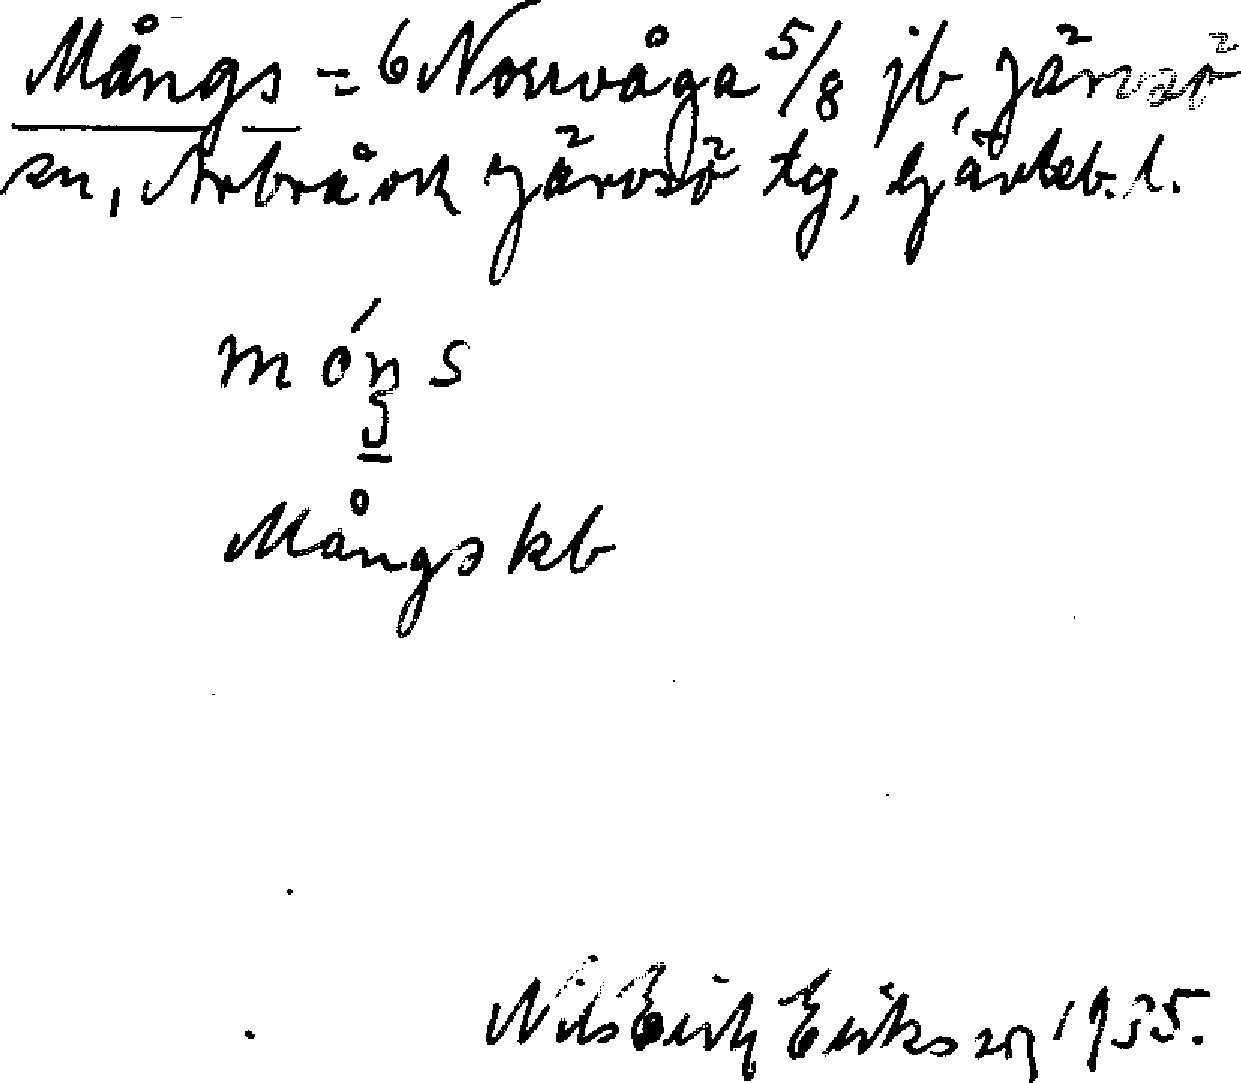 Mångs = 6 Norrvåga 5/8 jb, Järvsö
sn, Arbrå och Järvsö tg, Gävleb. l.
móŋs
Mångs kb
Nils Erik Eriksson 1935.